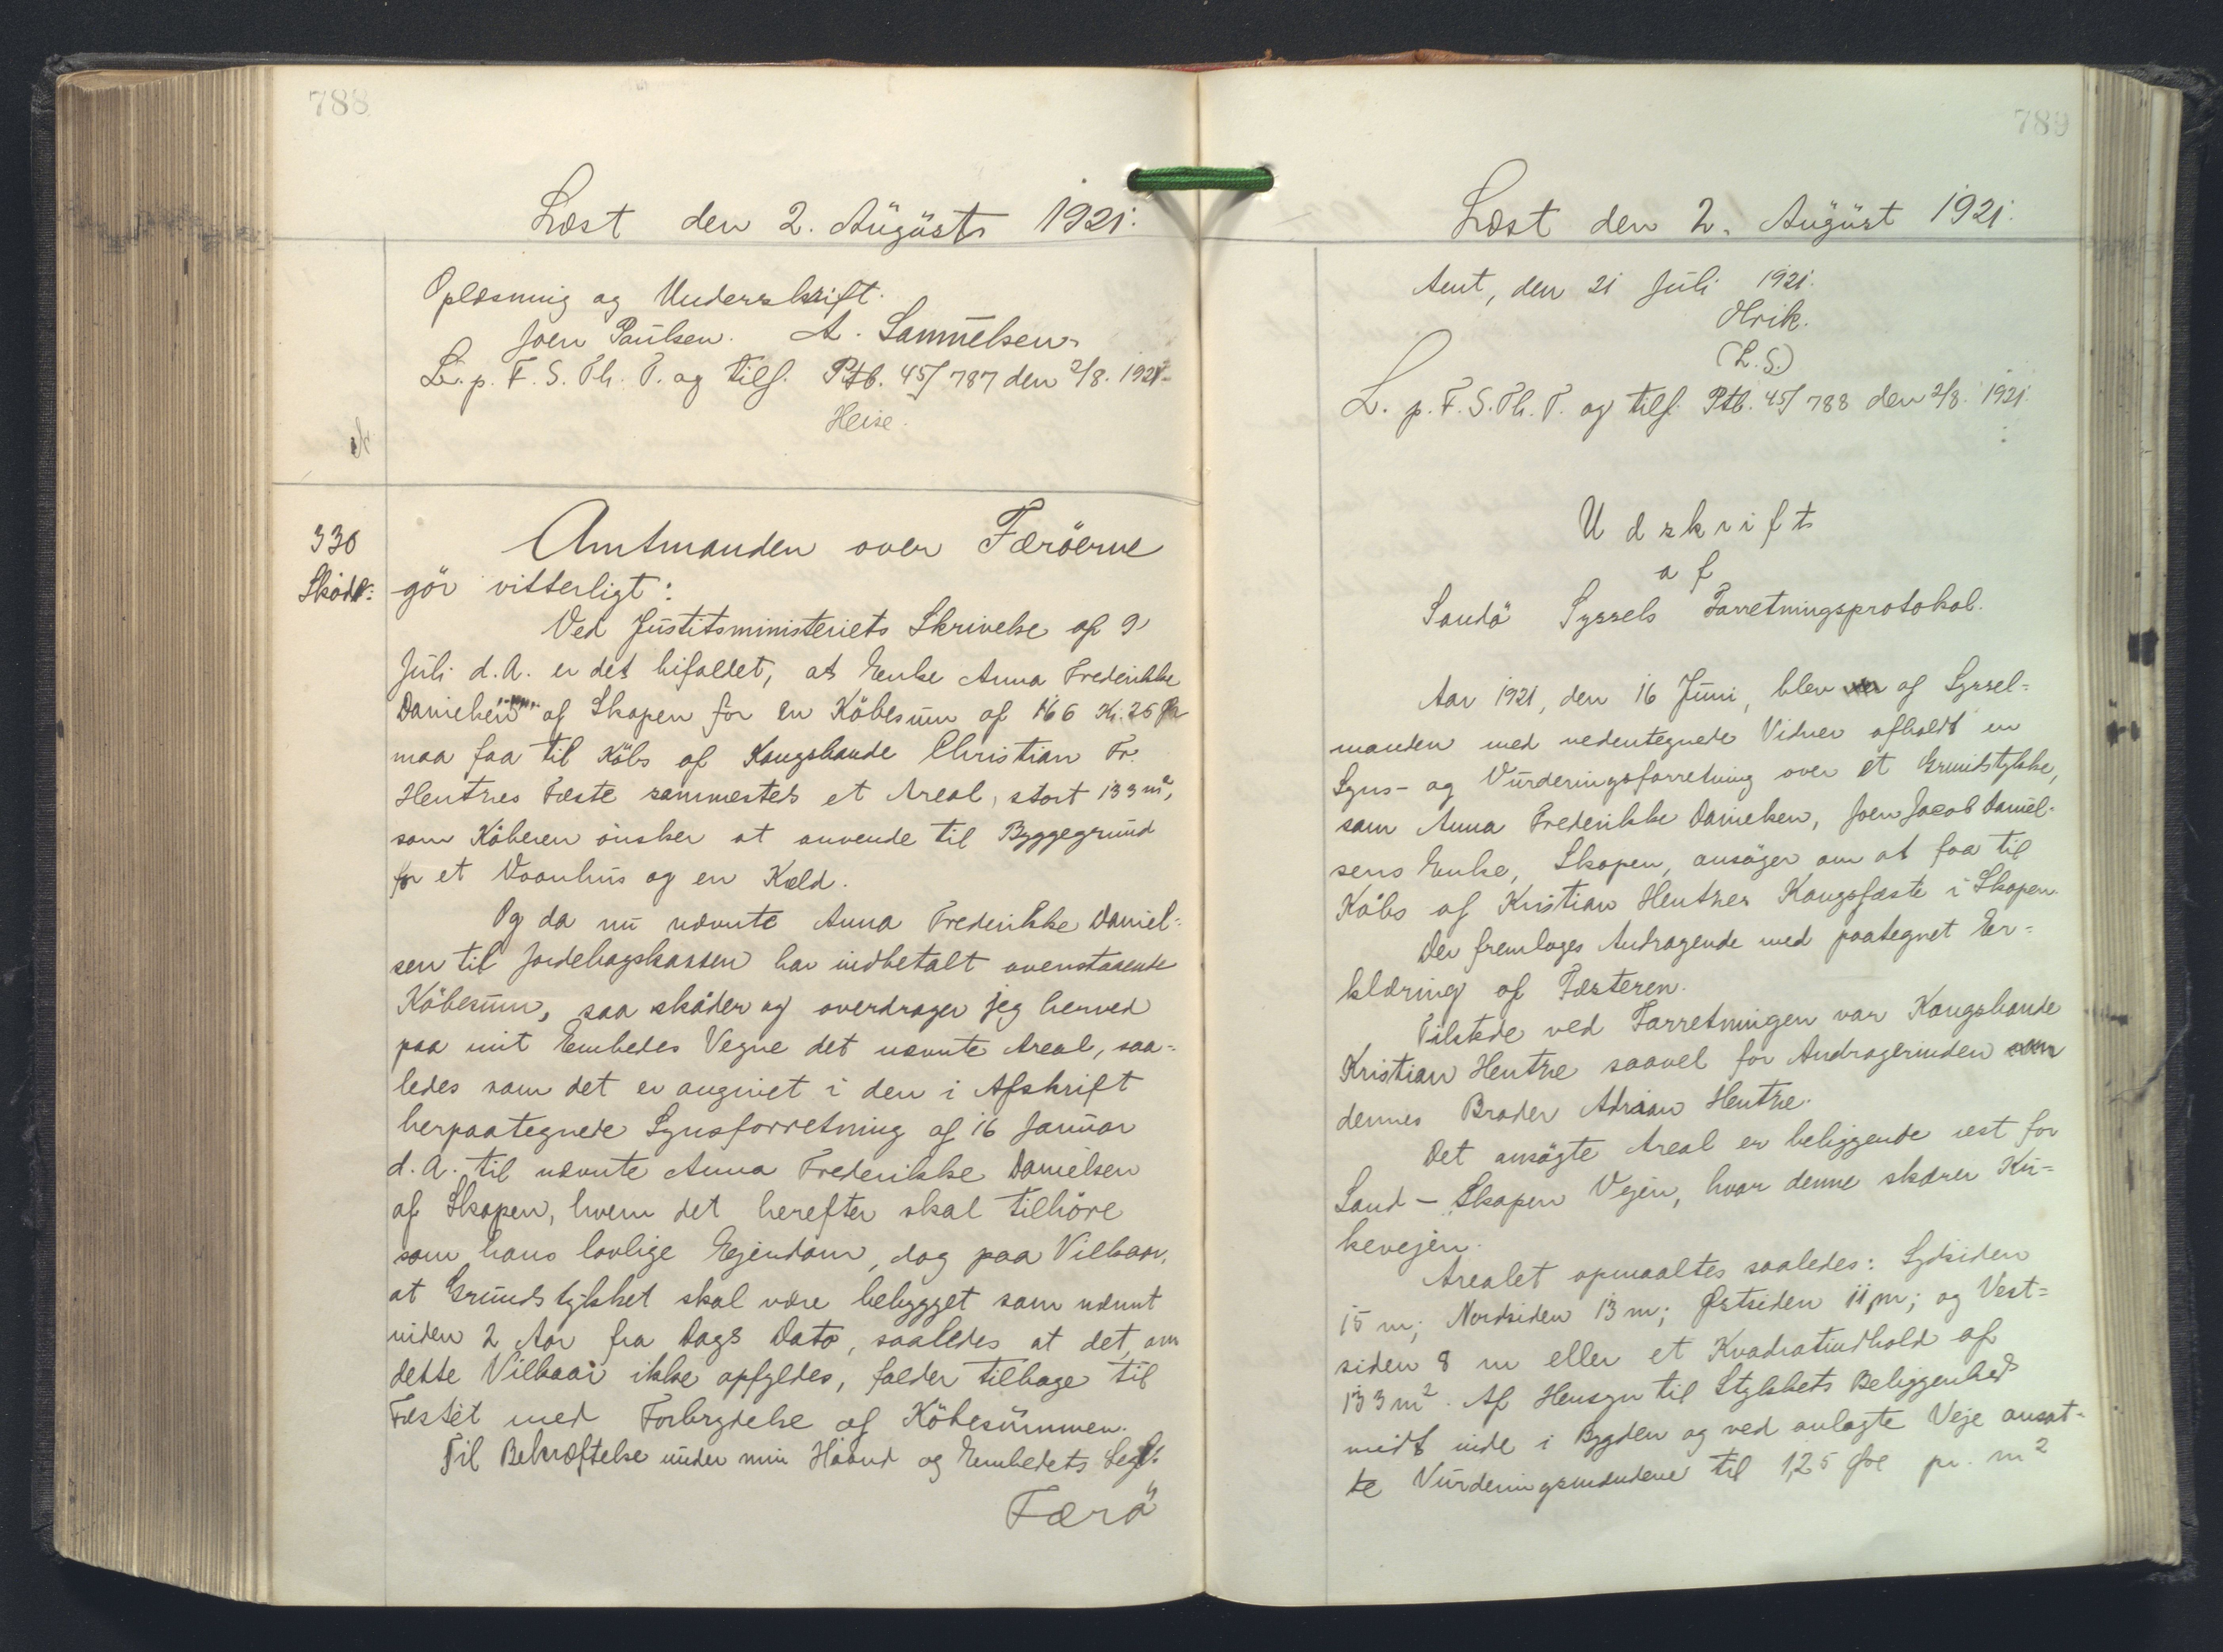 788
Læst den 2. August 1921.
Oplæsning og Underskrift.
Joen Paulsen. A. Samuelsen.
L. p. F. S. Th. T. og tilf. Ptb. 45/787 den 2/8. 1921.
Heise.
330
Skøde:
Amtmanden over Færöerne
gör vitterligt:
Ved Justitsministeriets Skrivelse af 9
Juli d.A. er det bifaldet, at Enke Anna Frederikke
Danielsen af Skopen for en Köbesum af 166 Kr. 25 Øre
maa faa til Köbs af Kongsbonde Christian Fr.
Hentzes Fæste sammesteds et Areal, stort 133 m²,
som Köberen önsker at anvende til Byggegrund
for et Vaanhus og en Kæld.
Og da nu nævnte Anna Frederikke Daniel=
sen til Jordebogskassen har indbetalt ovenstaaende
Köbesum, saa sköder og overdrager jeg herved
paa mit Embedes Vegne det nævnte Areal, saa=
ledes som det er angivet i den i Afskrift
herpaategnede Synsforretning af 16 Januar
d.A. til nævnte Anna Frederikke Danielsen
af Skopen, hvem det herefter skal tilhöre
som hans lovlige Ejendom, dog paa Vilkaar,
at Grundstykket skal være bebygget som nævnt
inden 2 Aar fra Dags Dato, saaledes at det, om
dette Vilkaar ikke opfyldes, falder tilbage til
Fæstet med Forbrydelse af Köbesummen.
Til Bekræftelse under min Haand og Embedets Segl.
Færö
789
Læst den 2. August 1921.
Amt, den 21 Juli 1921.
(L.S.)
L. p. F. S. Th. T. og tilf. Ptb. 45/788 den 2/8. 1921.
Udskrift
af
Sandö Syssels Forretningsprotokol.
Aar 1921, den 16 Juni, blev af Syssel=
manden med nedentegnede Vidner afholdt en
Syns- og Vurderingsforretning over et Grundstykke,
som Anna Frederikke Danielsen, Joen Jacob Daniel-
sens Enke, Skopen, ansöger om at faa til
Köbs af Kristian Hentzes Kongsfæste i Skopen.
Der fremlages Andragende med paategnet Er=
klæring af Fæsteren.
Tilstede ved Forretningen var Kongsbonde
Kristian Hentze saavel for Andragerinden som
dennes Broder Adrian Hentze.
Det ansögte Areal er beliggende vest for
Sand - Skopen Vejen, hvor denne skærer Kir=
kevejen.
Arealet opmaaltes saaledes: Sydsiden
15 m; Nordsiden 13 m; Østsiden 11 m; og Vest=
siden 8 m eller et Kvadratindhold af
133 m². Af Hensyn til Stykkets Beliggenhed
midt inde i Bygden og ved anlagte Veje ansat-
te Vurderingsmændene til 125 Øre pr. m²